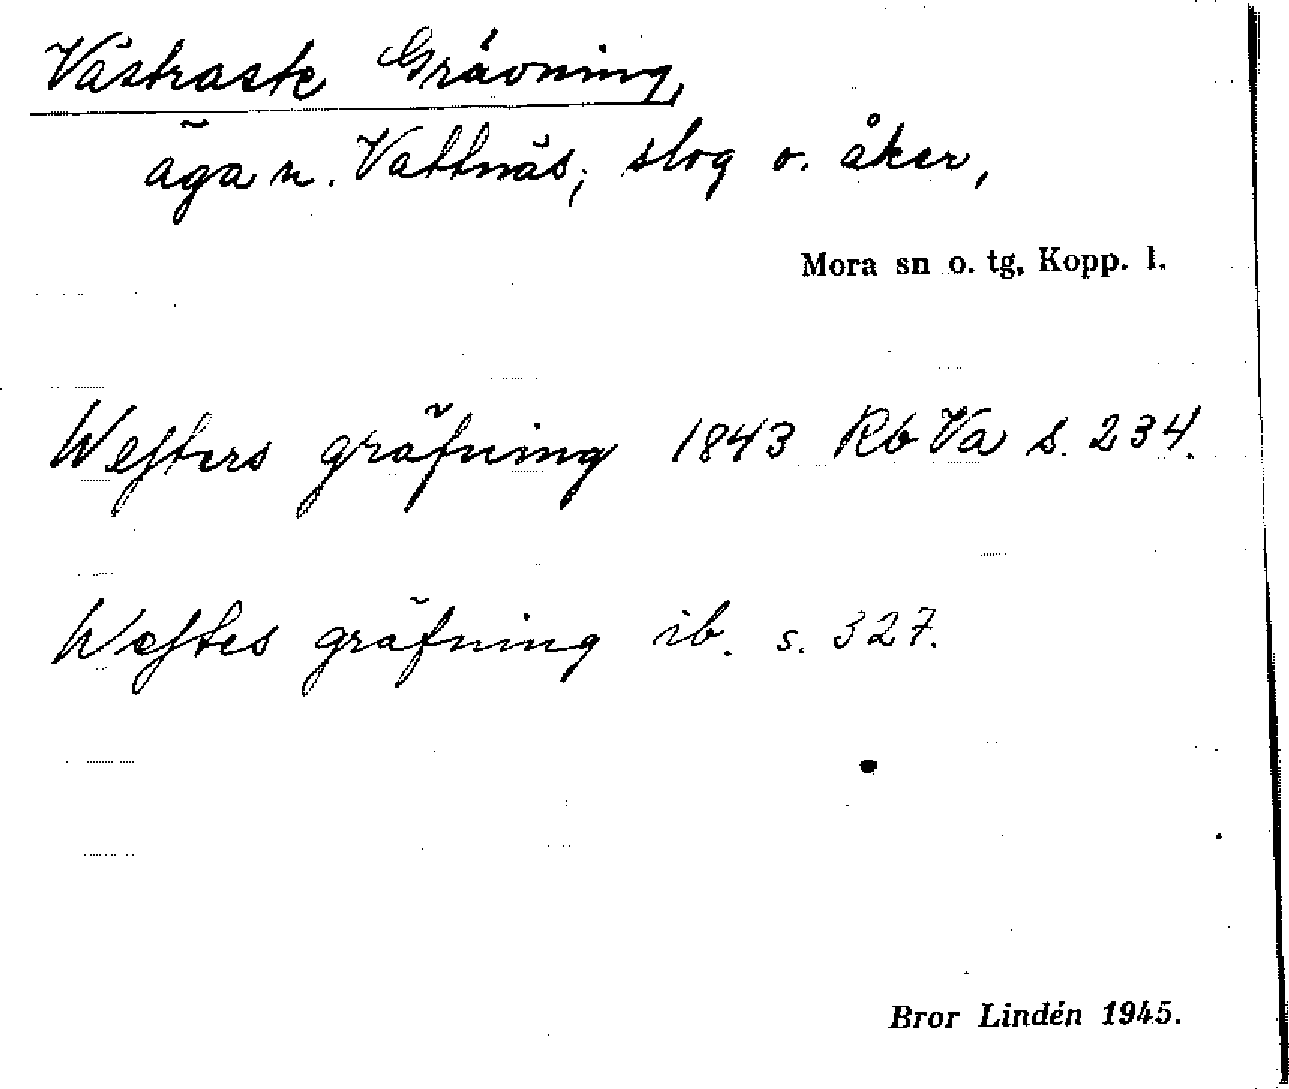 Västraste Grävning,
äga n. Vattnäs; slog o. åker,
Mora sn o. tg, Kopp. l.
Westers gräfning 1843 Rb Va s. 234.
Westes gräfning ib. s. 327.
Bror Lindén 1945.